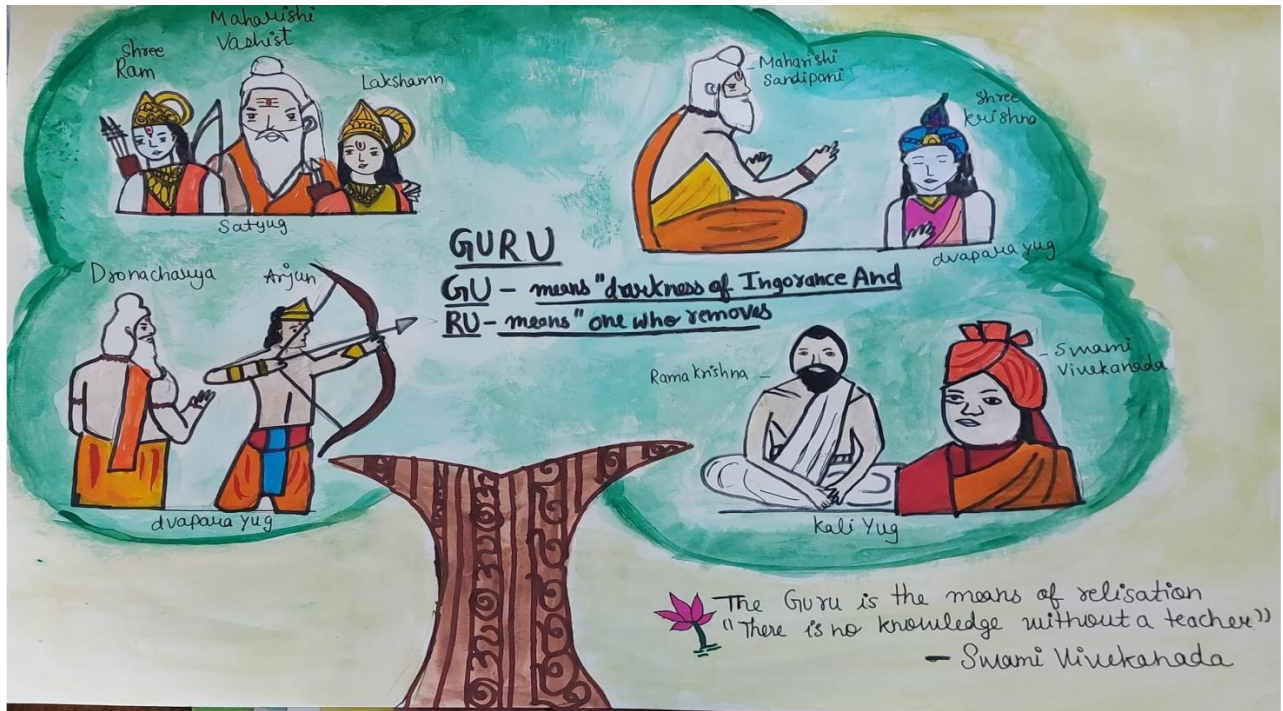 Maharishi
Vashist
Shree
Ram
Lakshamn
Satyug
Maharishi
Sandipani
Shree
Krishna
dvapara yug
GURU
GU - means "darkness of Ingorance And
RU - means "one who removes
Dronacharya
Arjun
dvapara yug
Ramakrishna -
- Swami
Vivekanada
Kali Yug
The Guru is the means of relisation
"There is no knowledge without a teacher"
- Swami Vivekanada